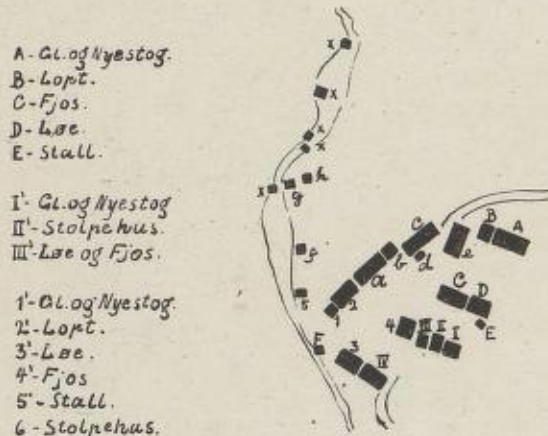 A - Gl. og Nyestog.
B - Lopt.
C - Fjos.
D - Løe.
E - Stall.
I' - Gl. og Nyestog
II' - Stolpehus.
III' - Løe og Fjos.
1' - Gl. og Nyestog.
2' - Lopt.
3' - Løe.
4' - Fjos
5' - Stall.
6 - Stolpehus.
x
x
x
x
x
g
h
f
5
F
1
2
a
b
C
d
e
B
A
C
D
E
4
III
II
I
3
IV